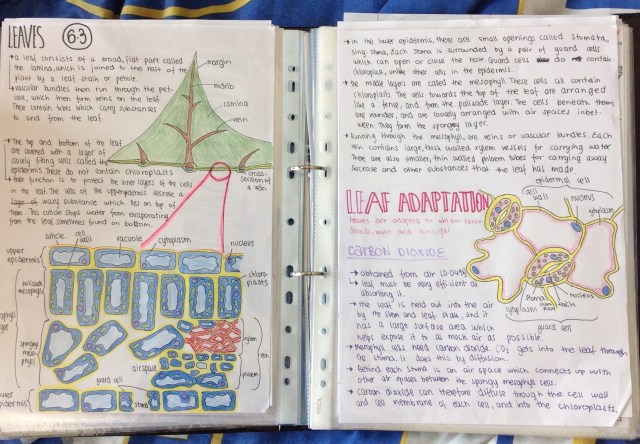 LEAVES
6.3
→ a leaf consists of a broad, flat part called
the lamina, which is joined to the rest of the
plant by a leaf stalk or petiole.
→ vascular bundles then run through the pet-
iole, which then form veins on the leaf.
These contain tubes which carry substances
to and from the leaf.
margin
midrib
lamina
vein
→ The top and bottom of the leaf
are covered with a layer of
closely fitting cells called the
epidermis. These do not contain chloroplasts
→ their function is to protect the inner layers of the cells
in the leaf. The cells of the upper epidermis secrete a
layer of waxy substance which lies on top of
them. This cuticle stops water from evaporating
from the leaf. sometimes found on bottom.
cross-
section of
a vein
cell
wall
vacuole
cytoplasm
nucleus
upper
epidermis
chloro-
plasts
palisade
mesophyll
spongy
meso-
phyll
xylem
vein
phloem
airspace
guard cell
stoma
→ in the lower epidermis, there are small openings called stomata,
sing. stoma. Each stoma is surrounded by a pair of guard cells
which can open or close the hole. Guard cells do contain
chloroplasts, unlike other cells in the epidermis.
→ the middle layers are called the mesophyll. These cells all contain
chloroplasts. The cells towards the top of the leaf are arranged
like a fence, and form the palisade layer. The cells beneath them
are rounder, and are loosely arranged with air spaces inbet-
ween. They form the spongy layer.
→ Running through the mesophyll, are veins or vascular bundles. Each
vein contains large, thick walled xylem vessels for carrying water.
There are also smaller, thin walled phloem tubes for carrying away
sucrose and other substances that the leaf has made.
LEAF ADAPTATION
leaves are adapted to obtain carbon
dioxide, water and sunlight
CARBON DIOXIDE
→ obtained from air (0.04%)
↳ leaf must be very efficient at
absorbing it.
→ the leaf is held out into the air
by the stem and leaf stalk, and it
has a large surface area which
helps expose it to as much air as possible.
→ Mesophyll cells need carbon dioxide. CO2 gets into the leaf through
the stoma. It does this by diffusion.
→ Behind each stoma is an air space which connects up with
other air spaces between the spongy mesophyll cells.
→ Carbon dioxide can therefore diffuse through the cell wall
and cell membrane of each cell, and into the chloroplasts.
epidermal cell
cell
wall
nucleus
cytoplasm
stoma
nucleus
cytoplasm
guard cell